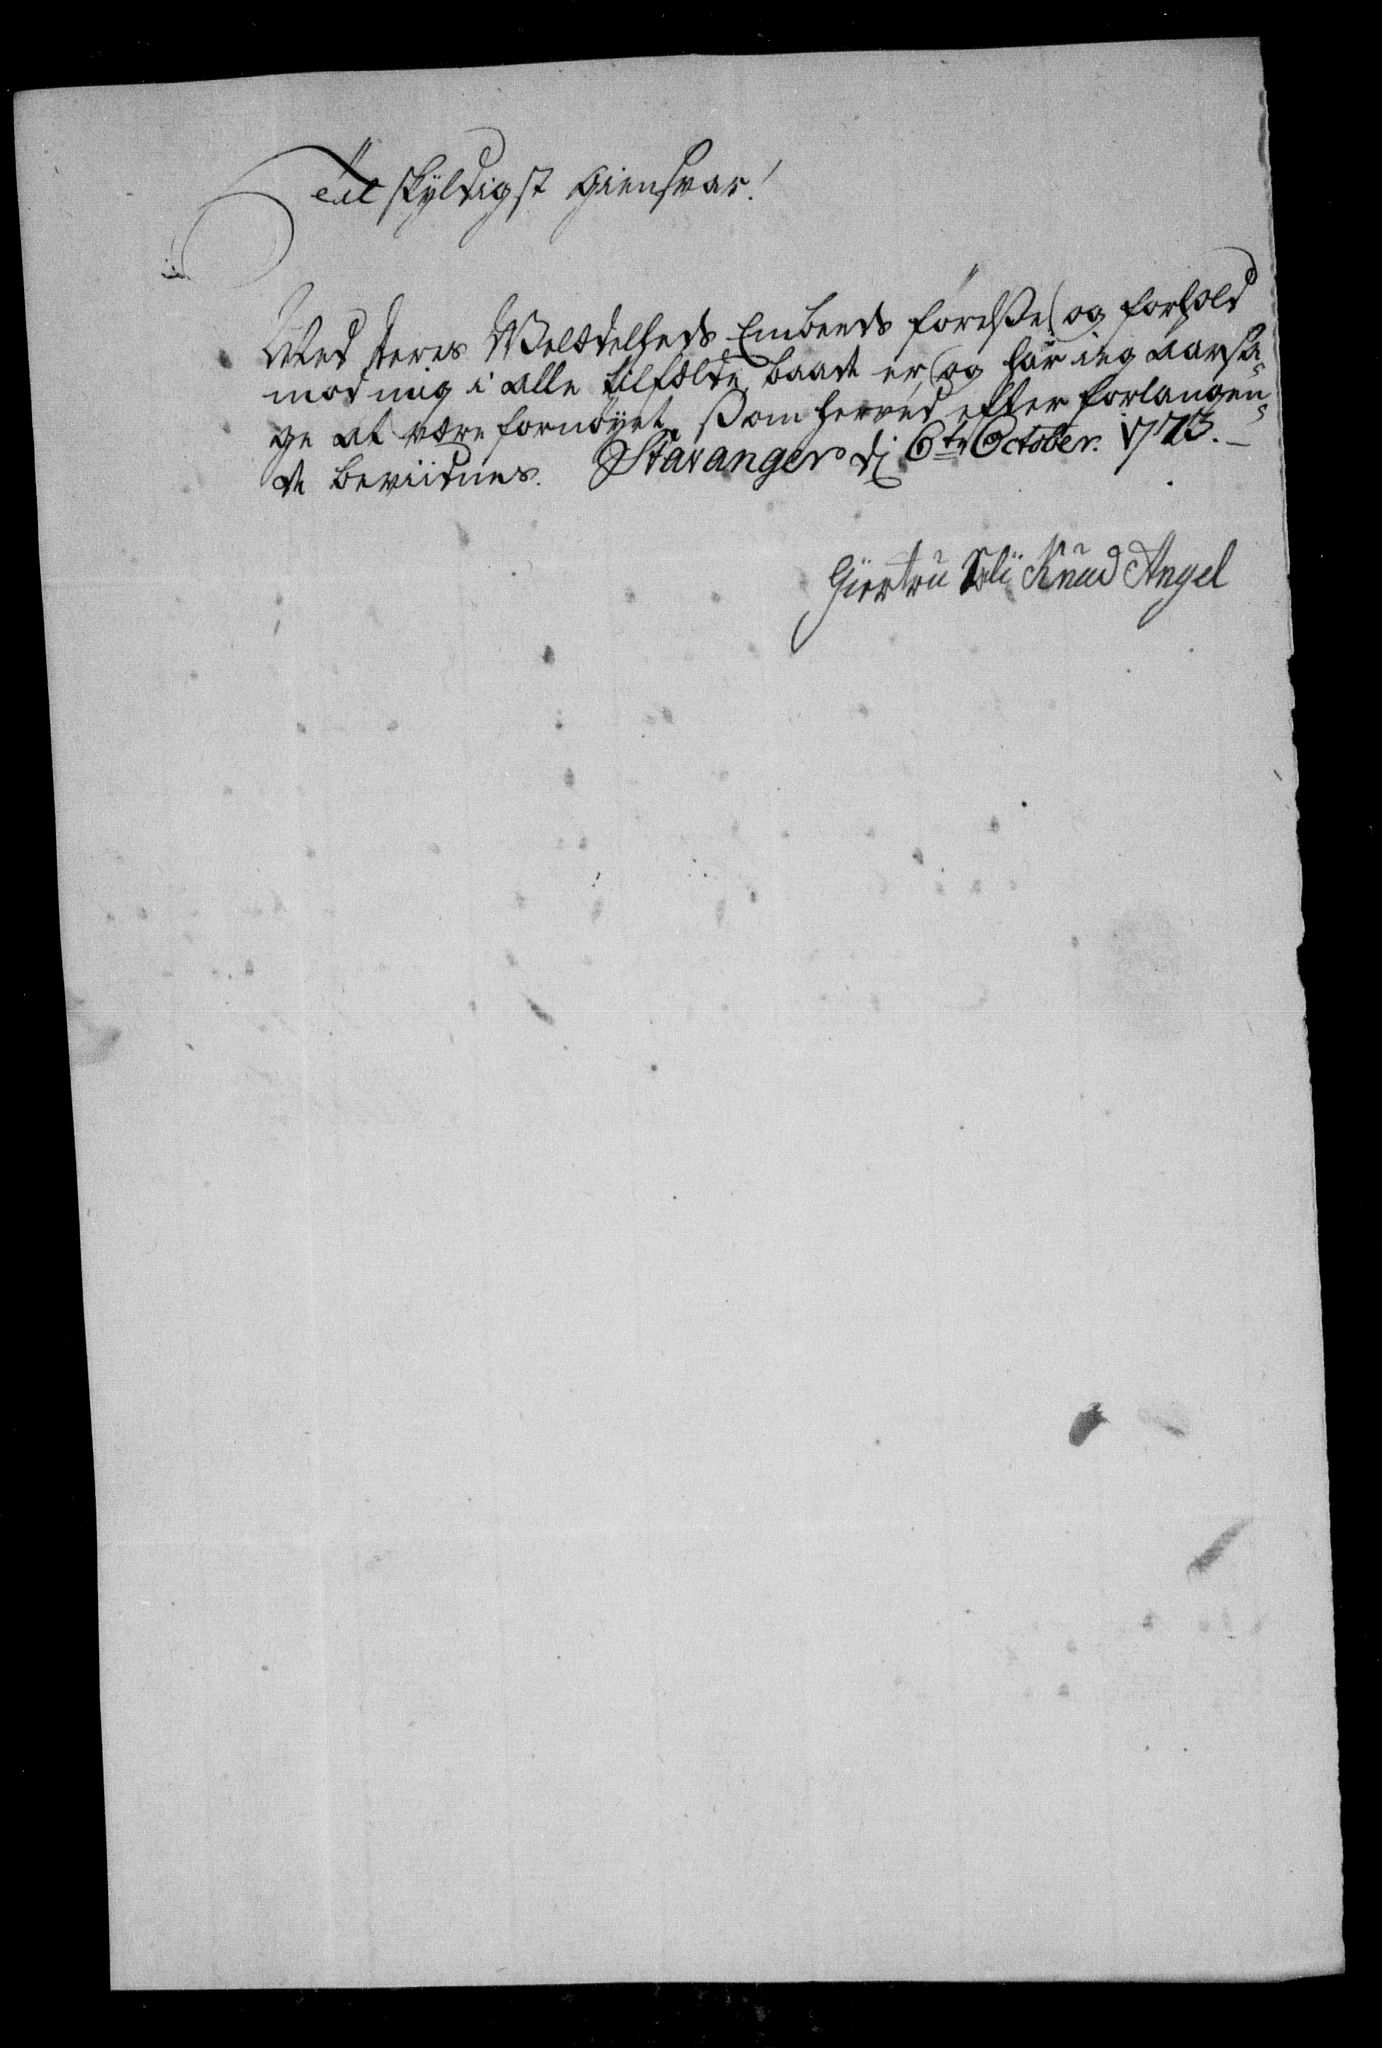 Till skyldigst giensvar!
Med deres Velædelheds Embeds førelße og forhold
mod mig i alle tilfælde, baade er og har ieg aarsa-
ge at være fornøyet, ßom herved efter forlangen-
de beviidnes. Stavanger dj 6te October. 1773.
Giertru Sl: Knud Angel